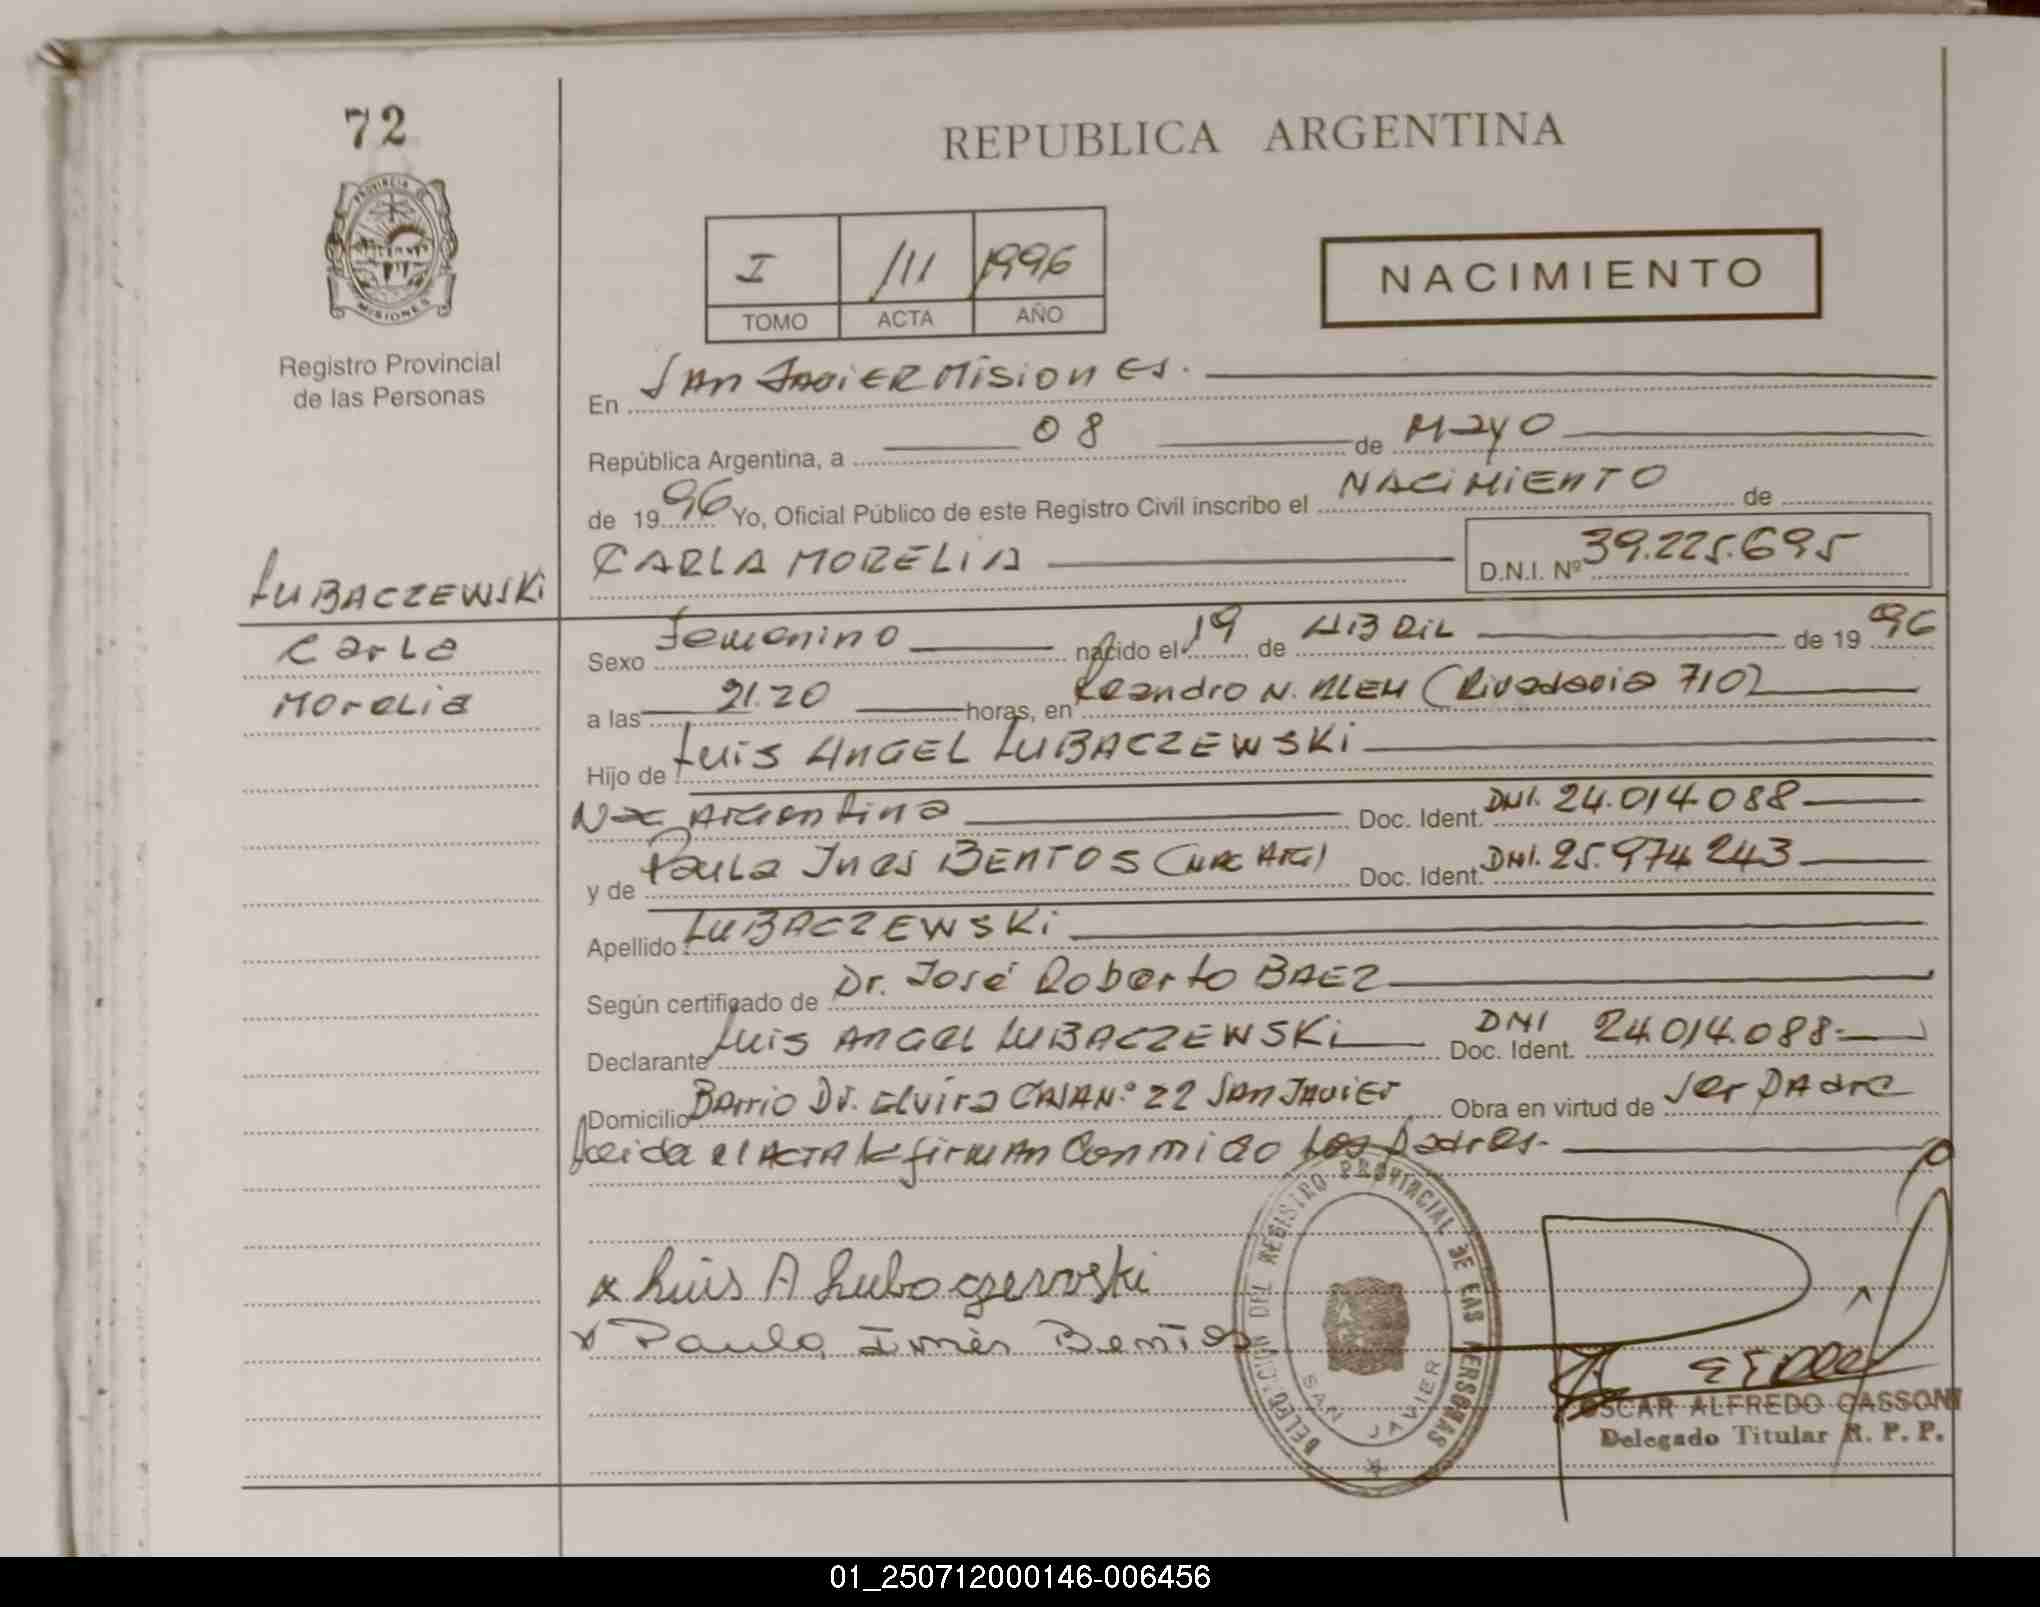 72
PROVINCIA DE
MISIONES
Registro Provincial
de las Personas
LUBACZEWSKi
Carla
Morelia
REPUBLICA ARGENTINA
I 111 1996
TOMO ACTA AÑO
NACIMIENTO
En SAN JAVIER MISIONES.
República Argentina, a 08 de Mayo
de 1996 Yo, Oficial Público de este Registro Civil inscribo el NACIMIENTO de
CARLA MORELIA D.N.I. Nº 39.225.695
Sexo Femenino nacido el 19 de ABRIL de 1996
a las 21.20 horas, en Leandro N. ALEM (Rivadavia 710)
Hijo de Luis ANGEL LUBACZEWSKi
Argentina Doc. Ident. DNI. 24.014.088
y de Paula Ines BENTOS (NAC ARG) Doc. Ident. DNI. 25.974.243
Apellido LUBACZEWSKi
Según certificado de Dr. José Roberto BAEZ
Declarante Luis ANGEL LUBACZEWSKi Doc. Ident. DNI 24.014.088
Domicilio Barrio Dr. Elvira CASA N.º 22 SAN JAVIER Obra en virtud de Ser PAdre
Leida el ACTA la firman Conmigo Los padres.
x Luis A Lubaczewski
x Paula Inés Bentos
DELEGACION DEL REGISTRO PROVINCIAL DE LAS PERSONAS
SAN JAVIER
OSCAR ALFREDO CASSONI
Delegado Titular R. P. P.
01_250712000146-006456